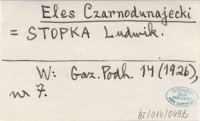 Eleś Czarnodunajecki
= STOPKA Ludwik.
W: Gaz. Podh. 14 (1926),
nr 7.